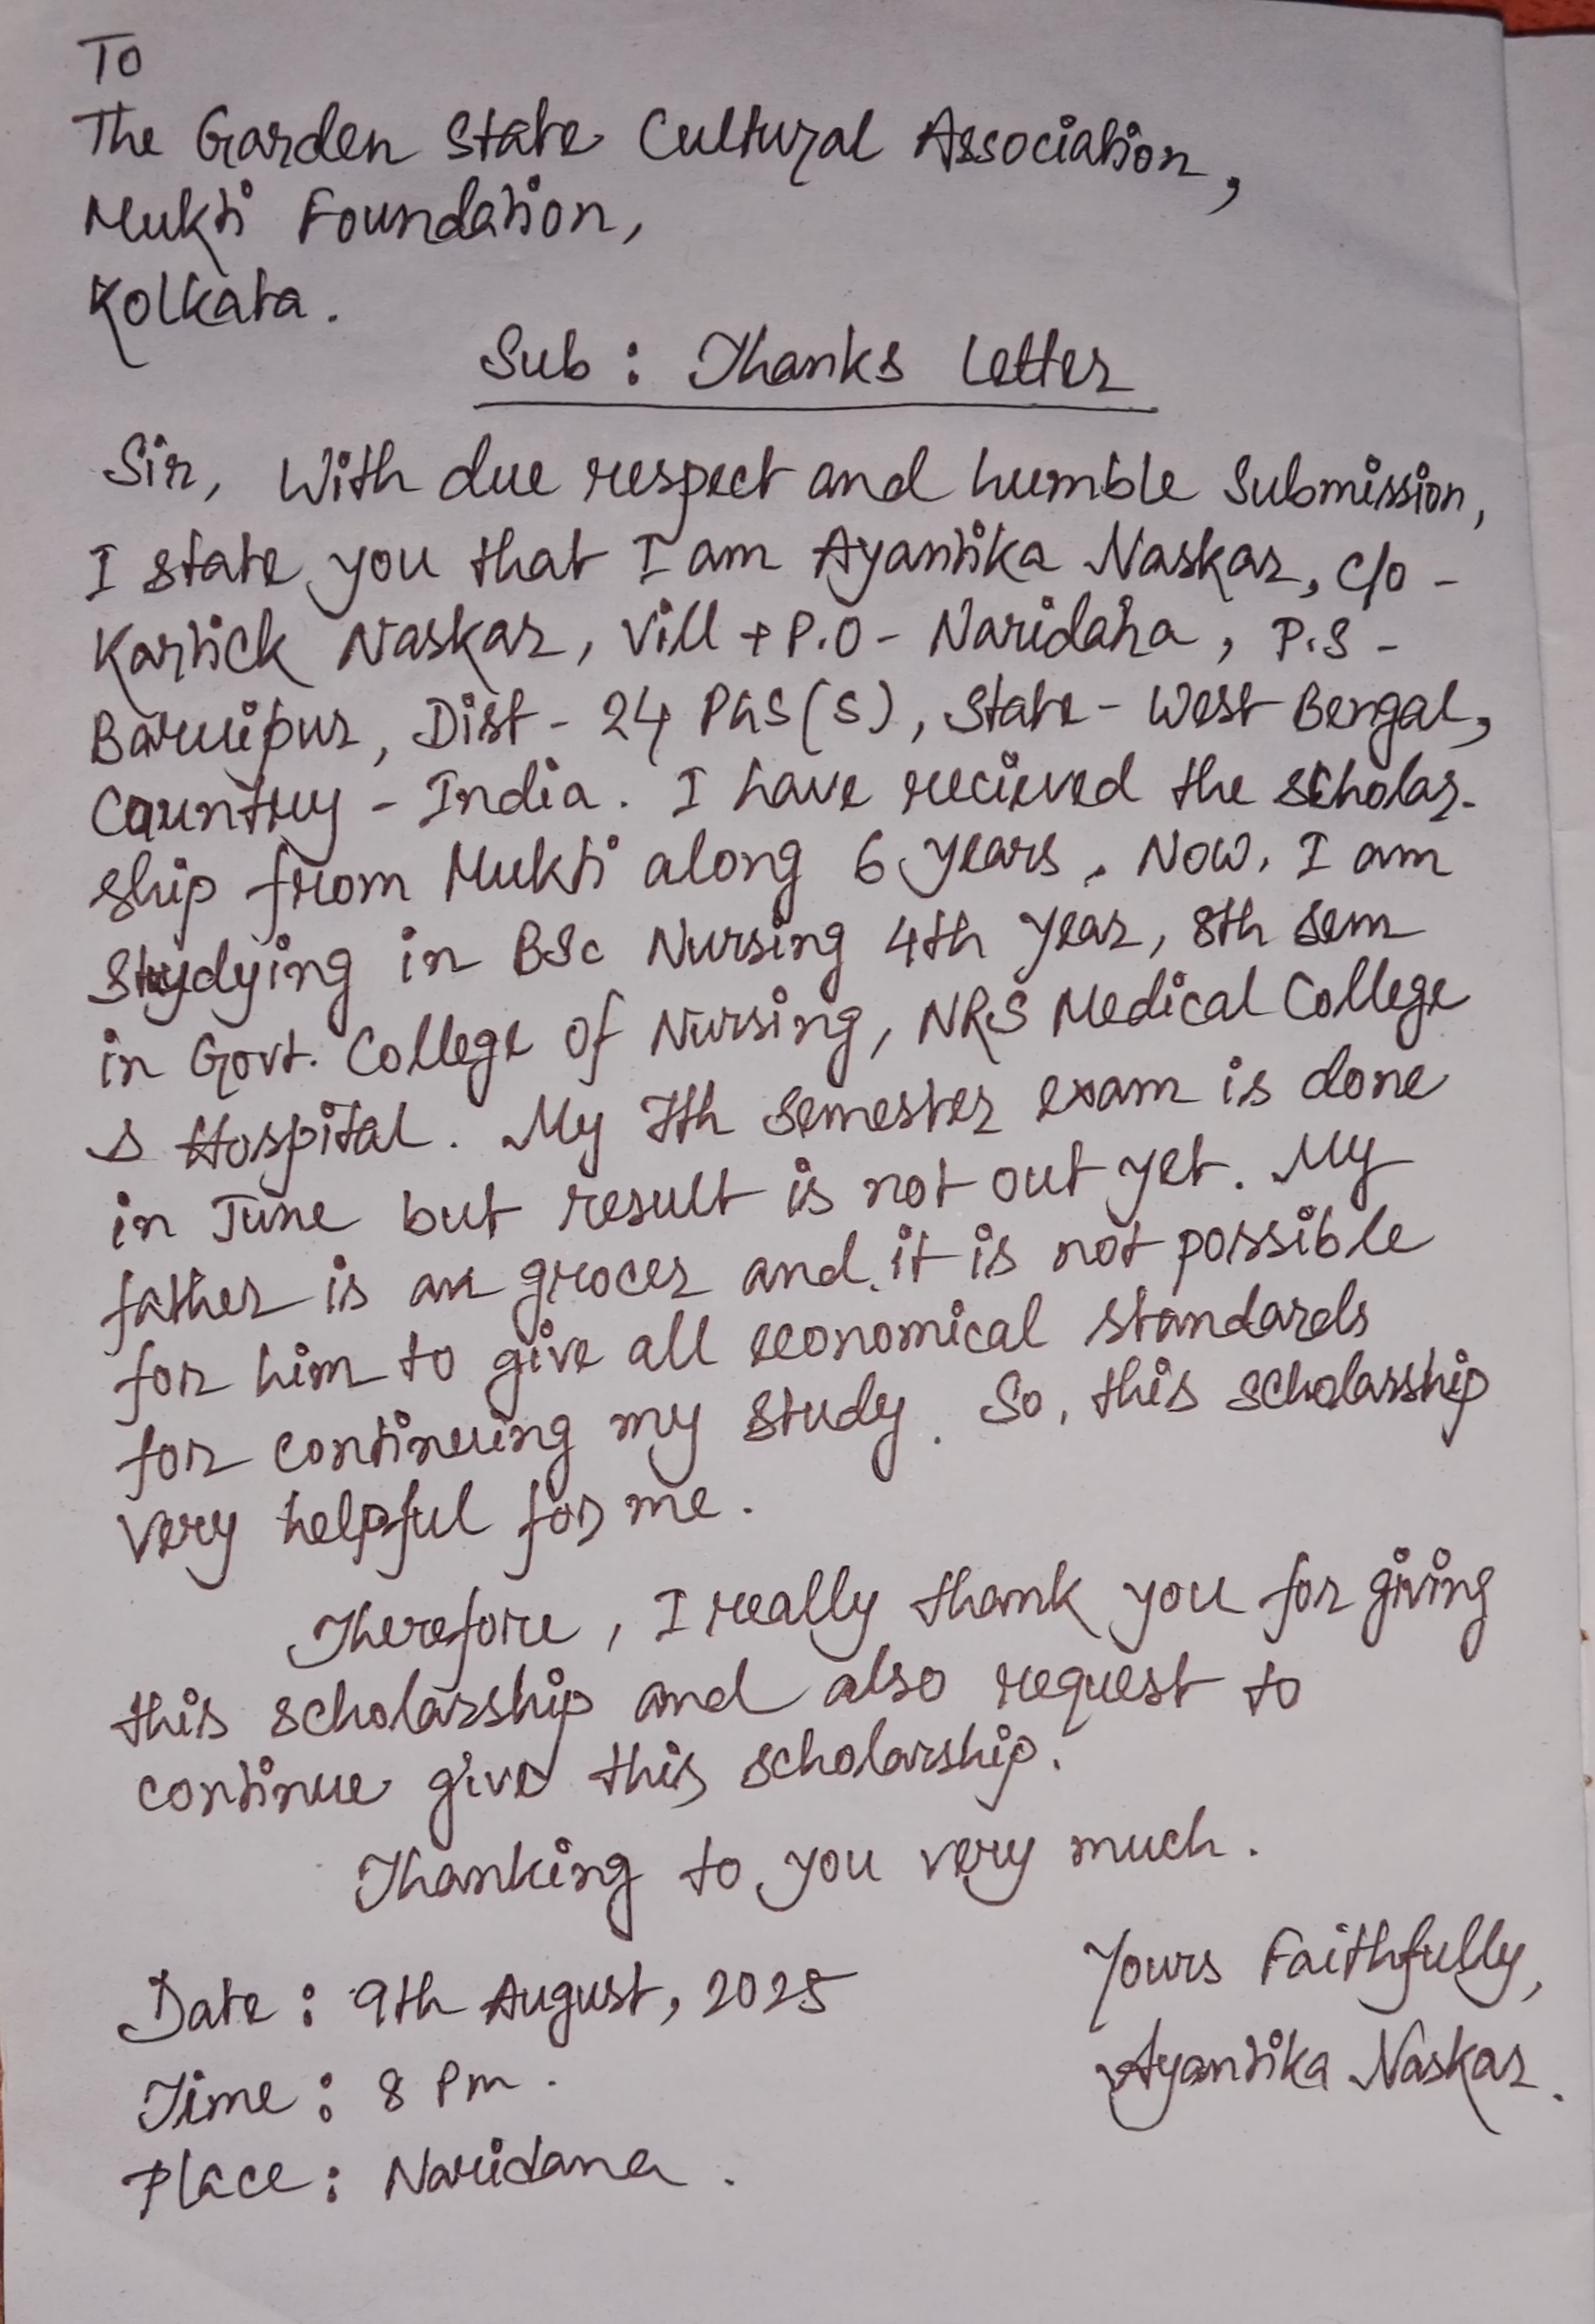 To
The Garden State Cultural Association,
Mukti Foundation,
Kolkata.
Sub : Thanks Letter
Sir, With due respect and humble Submission,
I state you that I am Ayantika Naskar, c/o -
Kartick Naskar, Vill + P.O - Naridana, P.S -
Baruipur, Dist - 24 PGS (S), State - West Bengal,
Country - India. I have recieved the scholar-
ship from Mukti along 6 years. Now, I am
studying in BSc Nursing 4th year, 8th sem
in Govt. College of Nursing, NRS Medical College
& Hospital. My 7th semester exam is done
in June but result is not out yet. My
father is an grocer and it is not possible
for him to give all economical standards
for continuing my study. So, this scholarship
very helpful for me.
Therefore, I really thank you for giving
this scholarship and also request to
continue give this scholarship.
Thanking to you very much.
Yours Faithfully,
Ayantika Naskar.
Date : 9th August, 2025
Time : 8 Pm.
Place : Naridana.